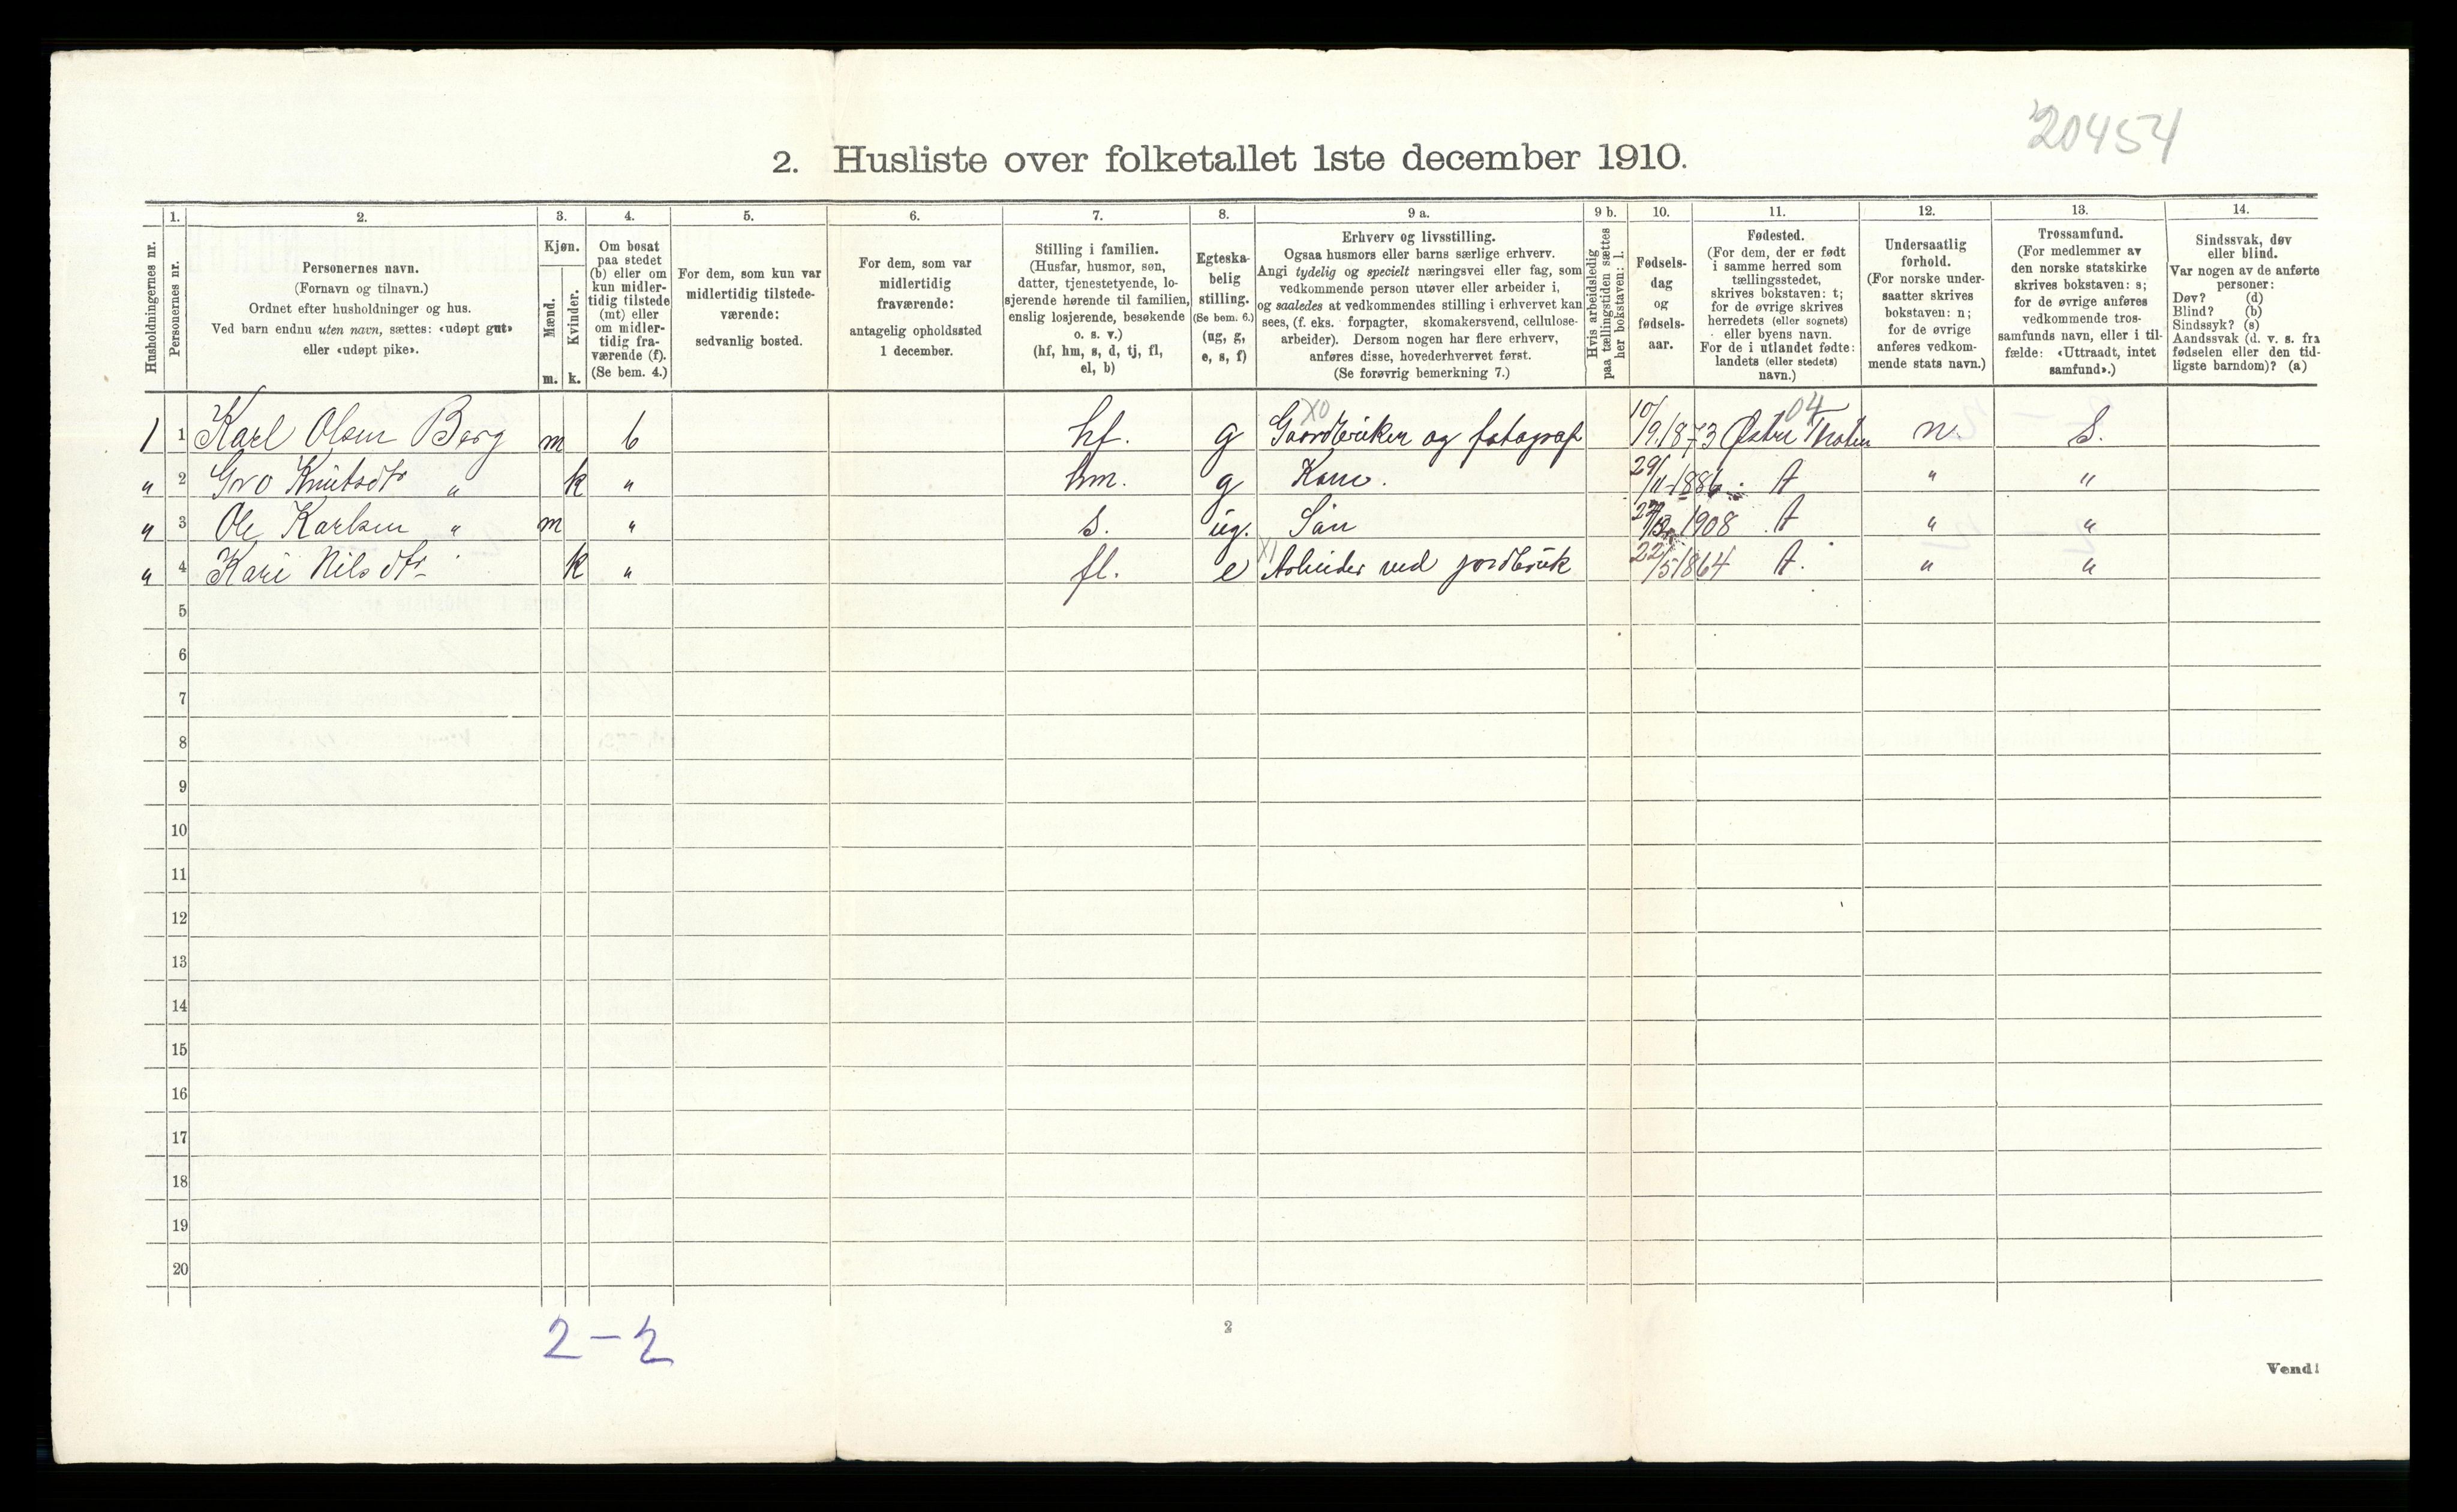 20454
2. Husliste over folketallet 1ste december 1910.
Husholdningernes nr.
1.
Personernes nr.
2.
Personernes navn.
(Fornavn og tilnavn.)
Ordnet efter husholdninger og hus.
Ved barn endnu uten navn, sættes: «udøpt gut»
eller «udøpt pike».
3.
Kjøn.
Mænd.
Kvinder.
m. k.
4.
Om bosat
paa stedet
(b) eller om
kun midler-
tidig tilstede
(mt) eller
om midler-
tidig fra-
værende (f).
(Se bem. 4.)
5.
For dem, som kun var
midlertidig tilstede-
værende:
sedvanlig bosted.
6.
For dem, som var
midlertidig
fraværende:
antagelig opholdssted
1 december.
7.
Stilling i familien.
(Husfar, husmor, søn,
datter, tjenestetyende, lo-
sjerende hørende til familien,
enslig losjerende, besøkende
o. s. v.)
(hf, hm, s, d, tj, fl,
el, b)
8.
Egteska-
belig
stilling.
(Se bem. 6.)
(ug, g,
e, s, f)
9 a.
Erhverv og livsstilling.
Ogsaa husmors eller barns særlige erhverv.
Angi tydelig og specielt næringsvei eller fag, som
vedkommende person utøver eller arbeider i,
og saaledes at vedkommendes stilling i erhvervet kan
sees, (f. eks. forpagter, skomakersvend, cellulose-
arbeider). Dersom nogen har flere erhverv,
anføres disse, hovederhvervet først.
(Se forøvrig bemerkning 7.)
9 b.
Hvis arbeidsledig
paa tællingstiden sættes
her bokstaven: l.
10.
Fødsels-
dag
og
fødsels-
aar.
11.
Fødested.
(For dem, der er født
i samme herred som
tællingsstedet,
skrives bokstaven: t;
for de øvrige skrives
herredets (eller sognets)
eller byens navn.
For de i utlandet fødte:
landets (eller stedets)
navn.)
12.
Undersaatlig
forhold.
(For norske under-
saatter skrives
bokstaven: n;
for de øvrige
anføres vedkom-
mende stats navn.)
13.
Trossamfund.
(For medlemmer av
den norske statskirke
skrives bokstaven: s;
for de øvrige anføres
vedkommende tros-
samfunds navn, eller i til-
fælde: «Uttraadt, intet
samfund».)
14.
Sindssvak, døv
eller blind.
Var nogen av de anførte
personer:
Døv? (d)
Blind? (b)
Sindssyk? (s)
Aandssvak (d. v. s. fra
fødselen eller den tid-
ligste barndom)? (a)
X0 04
1 1 Karl Olsen Berg m b hf. g Gaardbruker og fotograf 10/9 1873 Østre Thoten n. S.
" 2 Gro Knutsdtr " k " hm. g Kone. 29/11 1886 t " "
" 3 Ole Karlsen " m " s. ug. Sön 1908 t " "
" 4 Kari Nilsdtr k " fl. e Arbeider ved jordbruk 22/5 1864 t. " "
5
6
7
8
9
10
11
12
13
14
15
16
17
18
19
20
2-2
2
Vend!